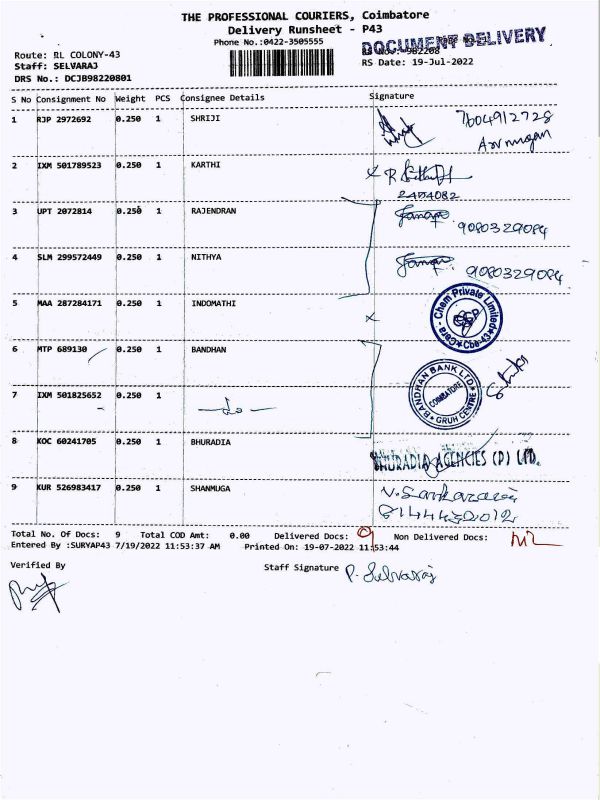 THE PROFESSIONAL COURIERS, Coimbatore
Delivery Runsheet - P43
Phone No.:0422-3505555
DOCUMENT DELIVERY
982208
Route: RL COLONY-43
Staff: SELVARAJ
RS Date: 19-Jul-2022
DRS No.: DCJB98220801
S No Consignment No Weight PCS Consignee Details Signature
1 RJP 2972692 0.250 1 SHRIJI 7604912728
Arumugan
2 IXM 501789523 0.250 1 KARTHI
2404082
3 UPT 2072814 0.250 1 RAJENDRAN 9080329084
4 SLM 299572449 0.250 1 NITHYA 9080329084
5 MAA 287284171 0.250 1 INDOMATHI Cera - Chem Private Limited Cbe-43
6 MTP 689130 0.250 1 BANDHAN BANDHAN BANK LTD. COIMBATORE GRUH CENTRE
7 IXM 501825652 0.250 1 -do-
8 KOC 60241705 0.250 1 BHURADIA BHURADIA AGENCIES (P) LTD.
9 KUR 526983417 0.250 1 SHANMUGA V. Sankaran
8144430012
Total No. Of Docs: 9 Total COD Amt: 0.00 Delivered Docs: 9 Non Delivered Docs: NIL
Entered By :SURYAP43 7/19/2022 11:53:37 AM Printed On: 19-07-2022 11:53:44
Verified By Staff Signature P. Selvaraj